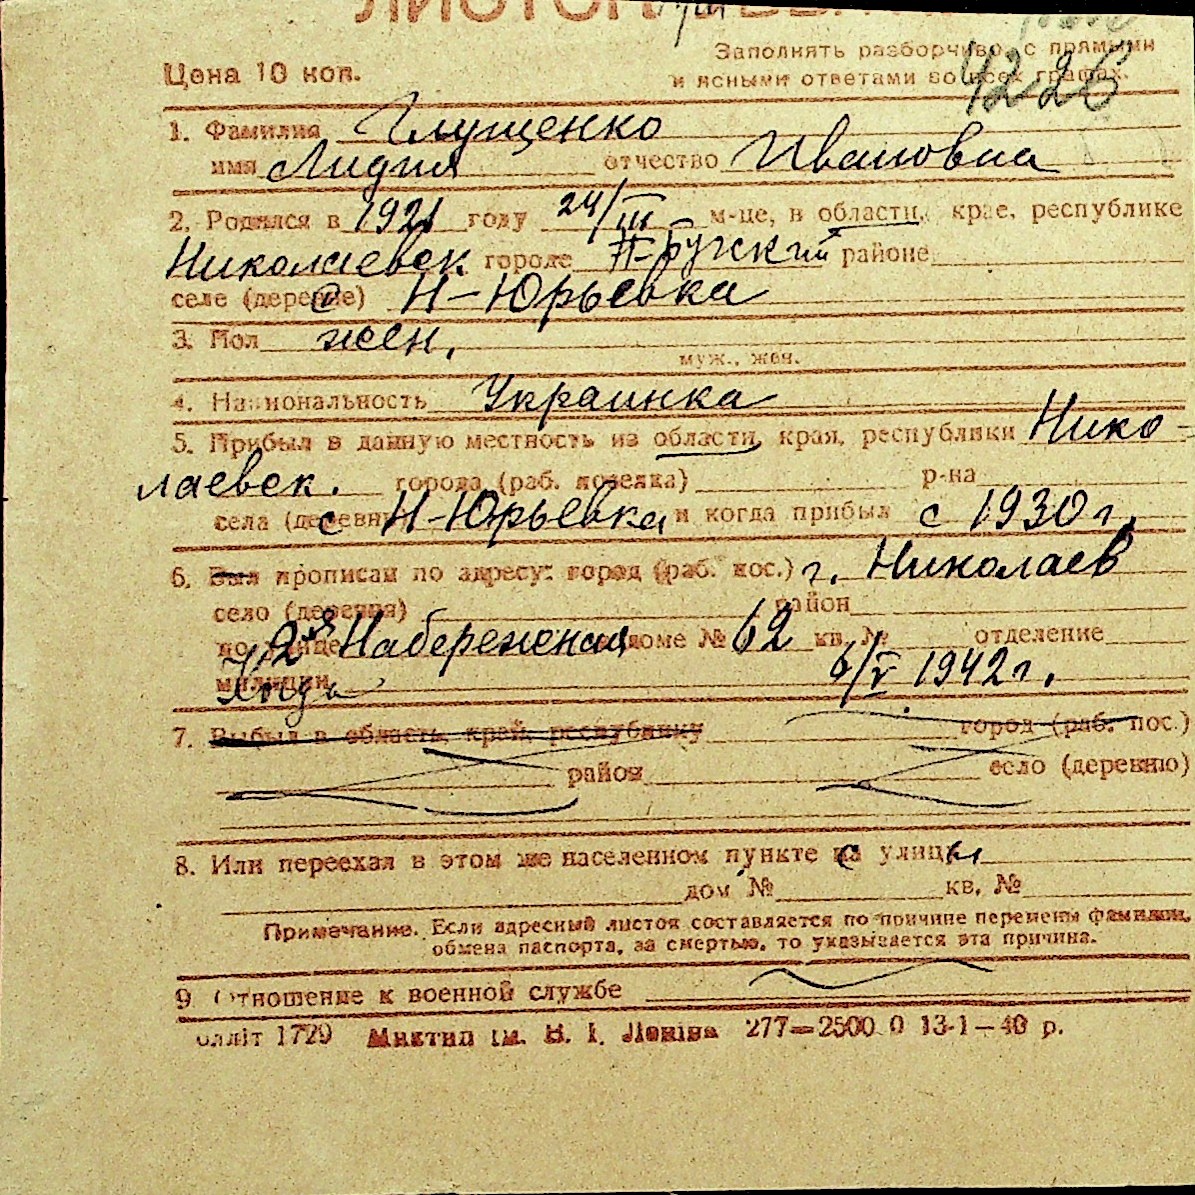 Заполнять разборчиво, с прямыми
Цена 10 коп. и ясными ответами во всех графах.
4226
1. Фамилия Глущенко
имя Лидия отчество Ивановна
2. Родился в 1921 году 24/III м-це, в области, крае, республике
Николаевск. городе районе
селе (деревне) с Н-Юрьевка
3. Пол жен.
муж., жен.
4. Национальность Украинка
5. Прибыл в данную местность из области, края, республики Нико-
лаевск. города (раб. поселка) р-на
села (деревни) с Н-Юрьевка и когда прибыл с 1930 г.
6. Был прописан по адресу: город (раб. пос.) г. Николаев
село (деревня) район
по улице 2я Набережная доме № 62 кв. № отделение
милиции 6/V 1942 г.
7. Выбыл в область, край, республику город (раб. пос.)
район село (деревню)
8. Или переехал в этом же населенном пункте с улицы
дом № кв. №
Примечание. Если адресный листок составляется по причине перемены фамилии,
обмена паспорта, за смертью, то указывается эта причина.
9. Отношение к военной службе
олліт 1729 Миктип ім. В. І. Леніна 277—2500 0 13-1—40 р.